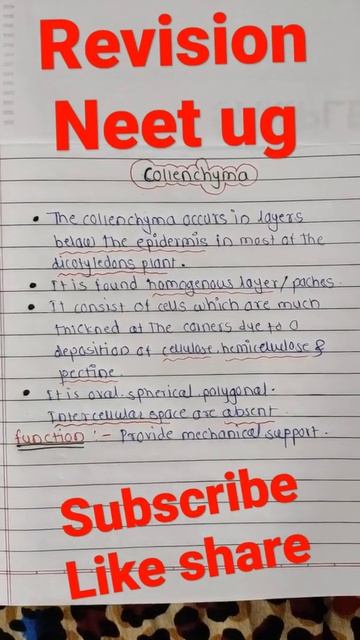 Revision
Neet ug
Collenchyma
• The collenchyma occurs in layers
below the epidermis in most of the
dicotyledons plant.
• It is found homogenous layer/paches.
• It consist of cells which are much
thickned at the corners due to a
deposition of cellulose, hemicellulose &
pectine.
• It is oval. spherical polygonal.
Intercellular space are absent.
function :- Provide mechanical support.
Subscribe
Like share